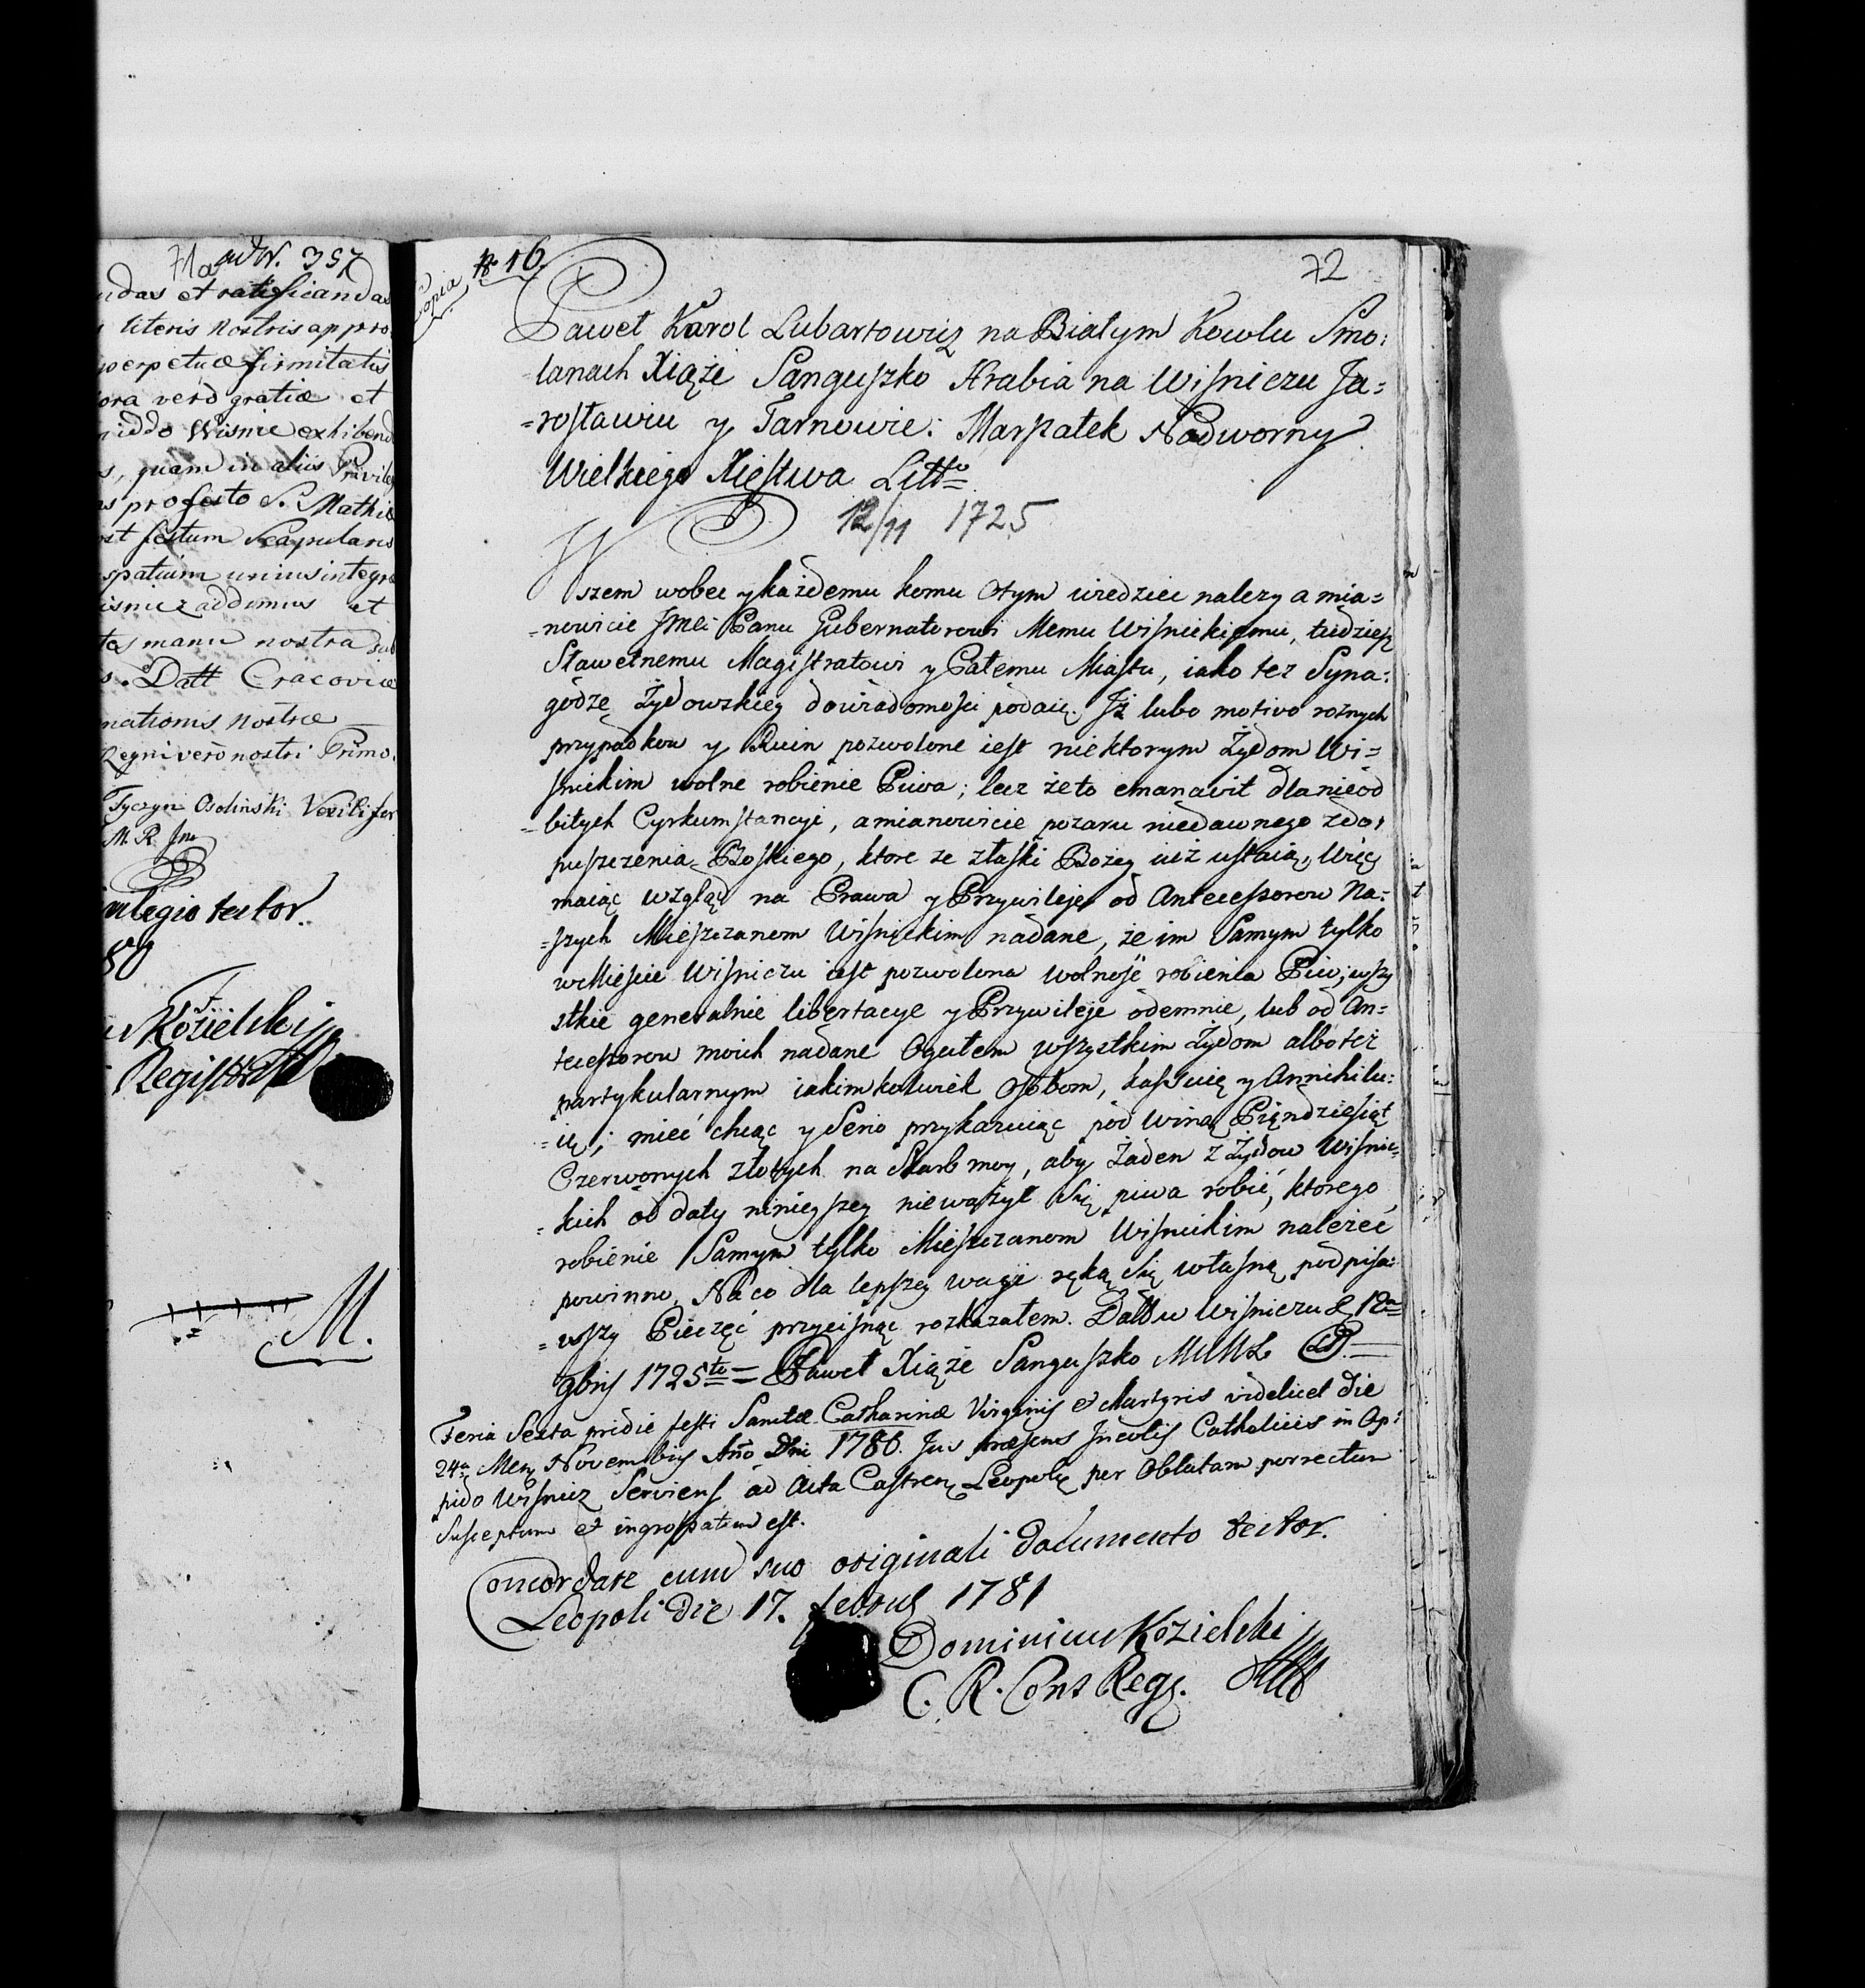 71a ad N. 357
udas et ratificandas
literis nostris appro
perpetuæ firmitatis
ora verò gratiæ et
iddo Wisnie exhibend
s, quam in aliis Privile
pro festo S. Mathiæ
st festum Scapularis
spatium unius integræ
isnicz addimus et
tes manu nostra sub
s. Datt Cracoviæ
nationis nostræ
Regni verò nostri Primo.
Tyczyn Osoliński Vexilifer
M. R. mp
ilegio tector.
80
Kozielski
Registr
M.
Copia
N. 16.
72
Paweł Karol Lubartowicz na Białym Kowlu Smo:
=lanach Xiąże Sanguszko Hrabia na Wiśniczu Ja=
=rosławiu y Tarnowie: Marszałek Nadworny
Wielkiego Xięstwa Litto=
12/11 1725
Wszem wobec y każdemu komu o tym wiedziec nalezy a mia=
=nowicie Jmci Panu Gubernatorowi Memu Wisnickiemu, tudziesz
Sławetnemu Magistratowi y Całemu Miastu, iako tez Syna=
godze Żydowskiey do wiadomosci podaię. Iż lubo motivo roznych
przypadkow y Ruin pozwolone iest niektorym Żydom Wi=
snickim wolne robienie Piwa; lecz że to emanavit dla nieod
=bitych Cyrkumstancyi, a mianowicie pozaru niedawnego z do,
puszczenia Boskiego, ktore ze z łaski Bożey iuż ustaią, Więc
maiąc wzgląd na Prawa y Przywileje od Antecessorow Na=
=szych Mieszczanom Wisnickim nadane, że im Samym tylko
w Miescie Wisniczu iest pozwolona wolność robienia Piw; wszy
stkie generalnie libertacye y Przywileje odemnie, lub od An=
tecessorow moich nadane Ogułem wszystkim Żydom albo też
partykularnym iakimkolwiek Osobom, kassuię y Annihilu=
=ię; mieć chcąc y Serio przykazuiąc pod winą Pięndziesiąt
Czerwonych złotych na Skarb moy, aby Żaden z Żydow Wisnic=
=kich od daty ninieyszey nieważył się piwa robić, ktorego
robienie Samym tylko Mieszczanom Wisnickim należeć
powinno. Na co dla lepszey wagi ręką się własną podpisa=
=wszy Pieczęć przycisnąc rozkazałem. Datt w Wisniczu d 12a
9bris 1725to = Paweł Xiąże Sanguszko MNWL (LS) =
Feria Sexta pridie festi Sanctæ Catharinæ Virginis et Martyris videlicet die
24a Mens Novembris Año Dni 1780. Jus præsens Incolis Catholicis in Op=
pido Wisnicz Serviens ad Acta Castren Leopoli per Oblatam porrectum
Susceptum et ingrossatum est.
Concordare cum suo originali documento tector.
Leopoli die 17. febrn 1781
Dominicus Kozielski
C. R. Cons Regs.